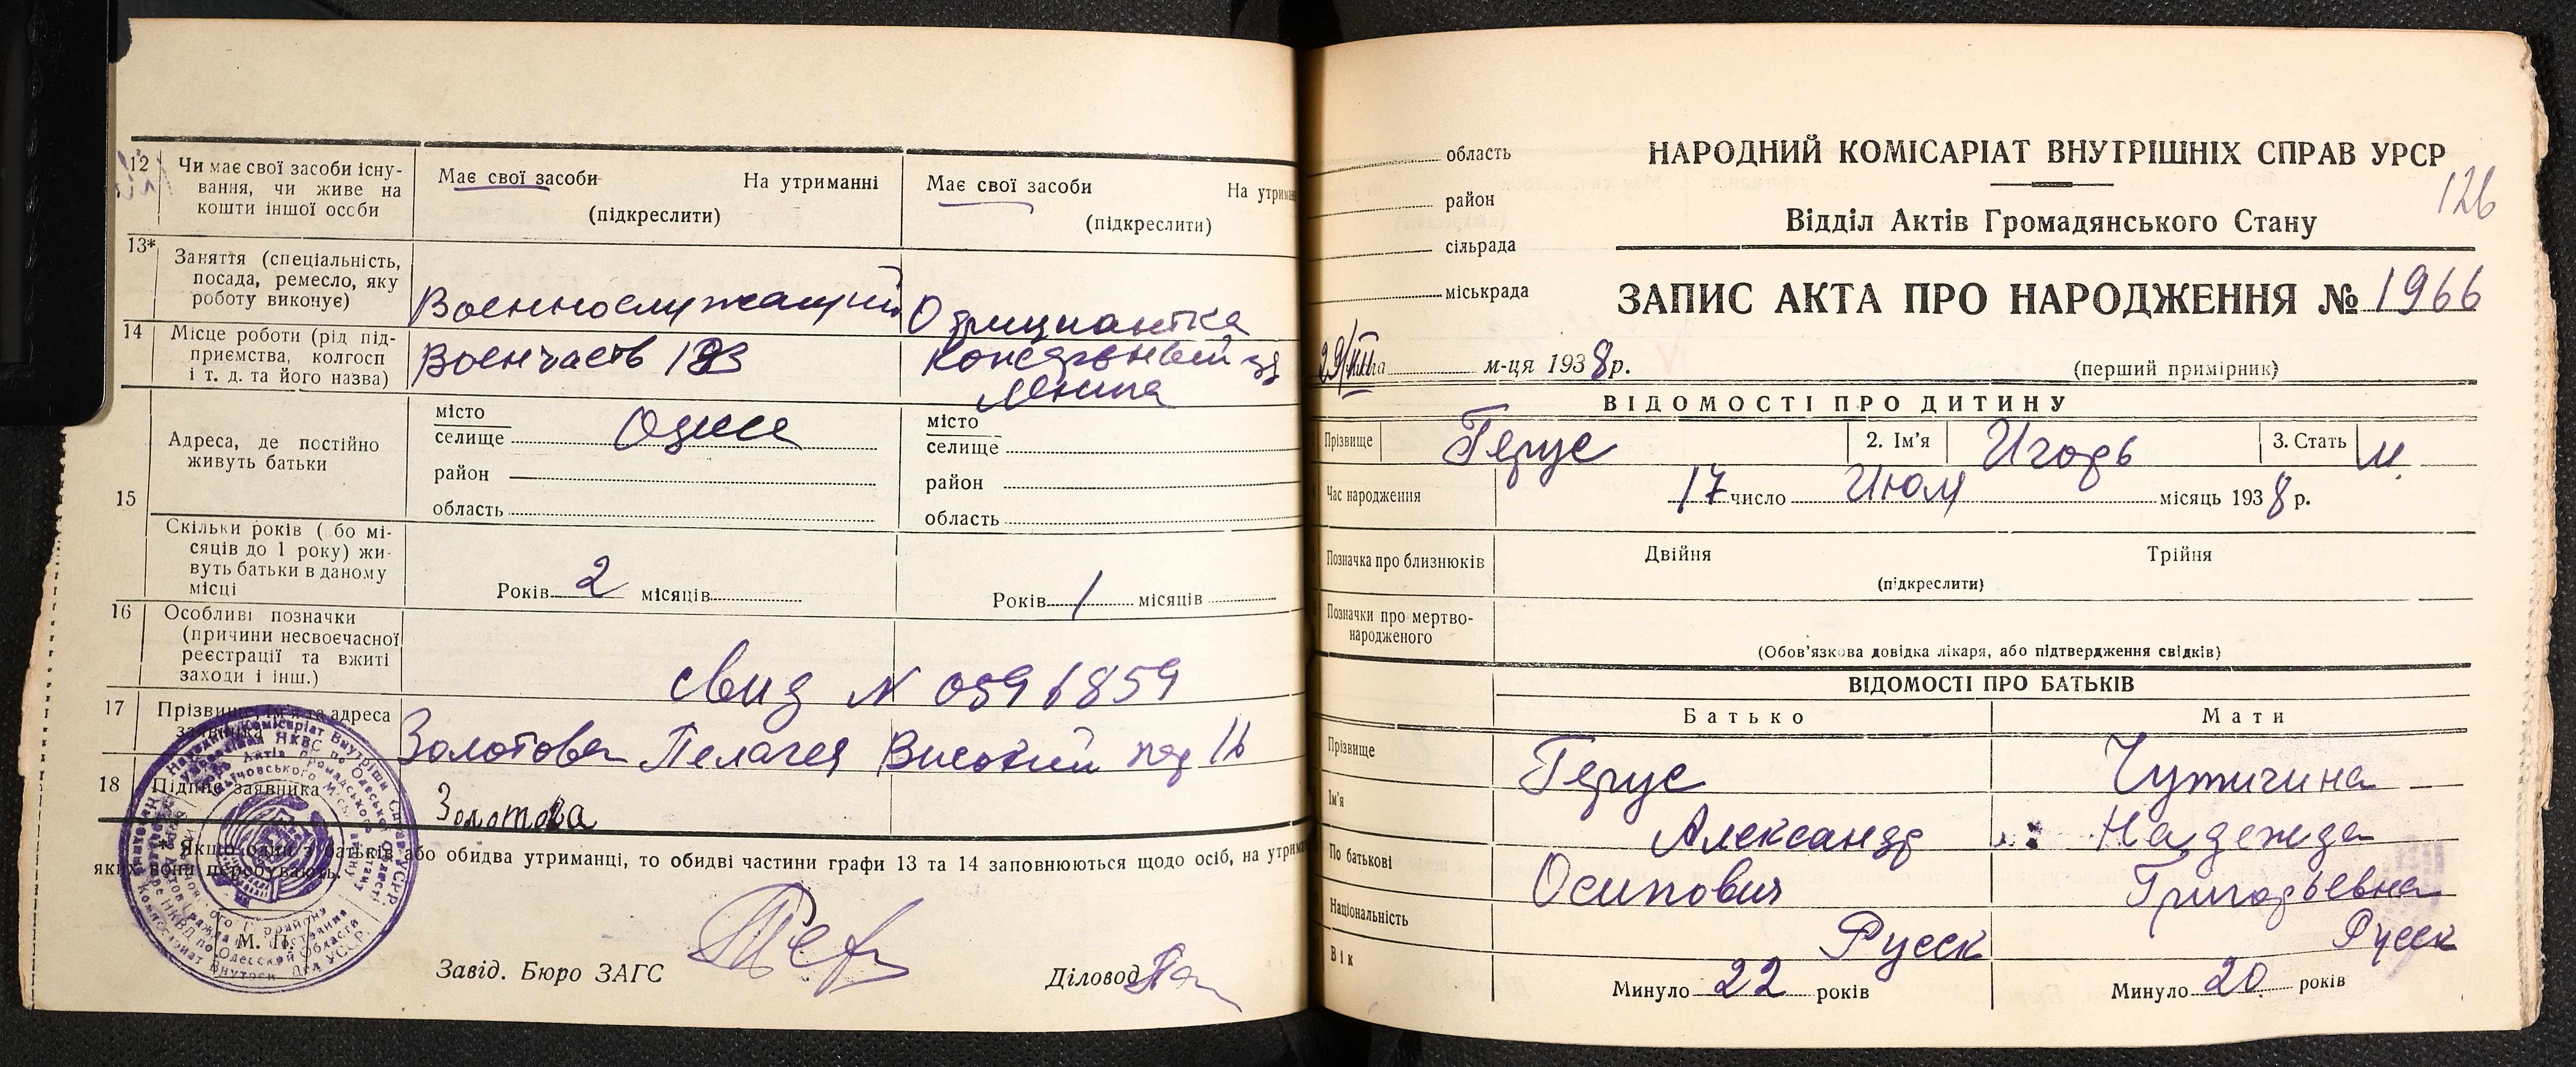 12
Чи має свої засоби існу-
вання, чи живе на
кошти іншої особи
Має свої засоби
На утриманні
(підкреслити)
Має свої засоби
На утрим
(підкреслити)
13*
Заняття (спеціальність,
посада, ремесло, яку
роботу виконує)
Военнослужащий
14
Місце роботи (рід під-
приємства, колгосп
і т. д. та його назва)
Военчасть
Консервный зд
Ленина
15
Адреса, де постійно
живуть батьки
місто
селище
Одесса
район
область
місто
селище
район
область
Скільки років ( бо мі-
сяців до 1 року) жи-
вуть батьки в даному
місці
Років 2 місяців
Років 1 місяців
16
Особливі позначки
(причини несвоєчасної
реєстрації та вжиті
заходи і інш.)
Свид N 0596859
17
Прізвище, ім'я та адреса
заявника
Золотова Пелагея Високий пер 16
18
Підпис заявника
Золотова
* Якщо один з батьків або обидва утриманці, то обидві частини графи 13 та 14 заповнюються щодо осіб, на утрима
яких вони перебувають.
М. П.
Завід. Бюро ЗАГС
Діловод
область
район
сільрада
міськрада
НАРОДНИЙ КОМІСАРІАТ ВНУТРІШНІХ СПРАВ УРСР
126
Відділ Актів Громадянського Стану
ЗАПИС АКТА ПРО НАРОДЖЕННЯ № 1966
29/VIII м-ця 1938 р.
(перший примірник)
ВІДОМОСТІ ПРО ДИТИНУ
Прізвище
Герус
2. Ім'я
Игорь
3. Стать
м.
Час народження
17 число Июля місяць 1938 р.
Позначка про близнюків
Двійня
Трійня
(підкреслити)
Позначки про мертво-
народженого
(Обов'язкова довідка лікаря, або підтвердження свідків)
ВІДОМОСТІ ПРО БАТЬКІВ
Батько
Мати
Прізвище
Герус
Чужичина
Ім'я
Александр
Надежда
По батькові
Осипович
Григорьевна
Національність
Русск
Русск
Вік
Минуло 22 років
Минуло 20 років